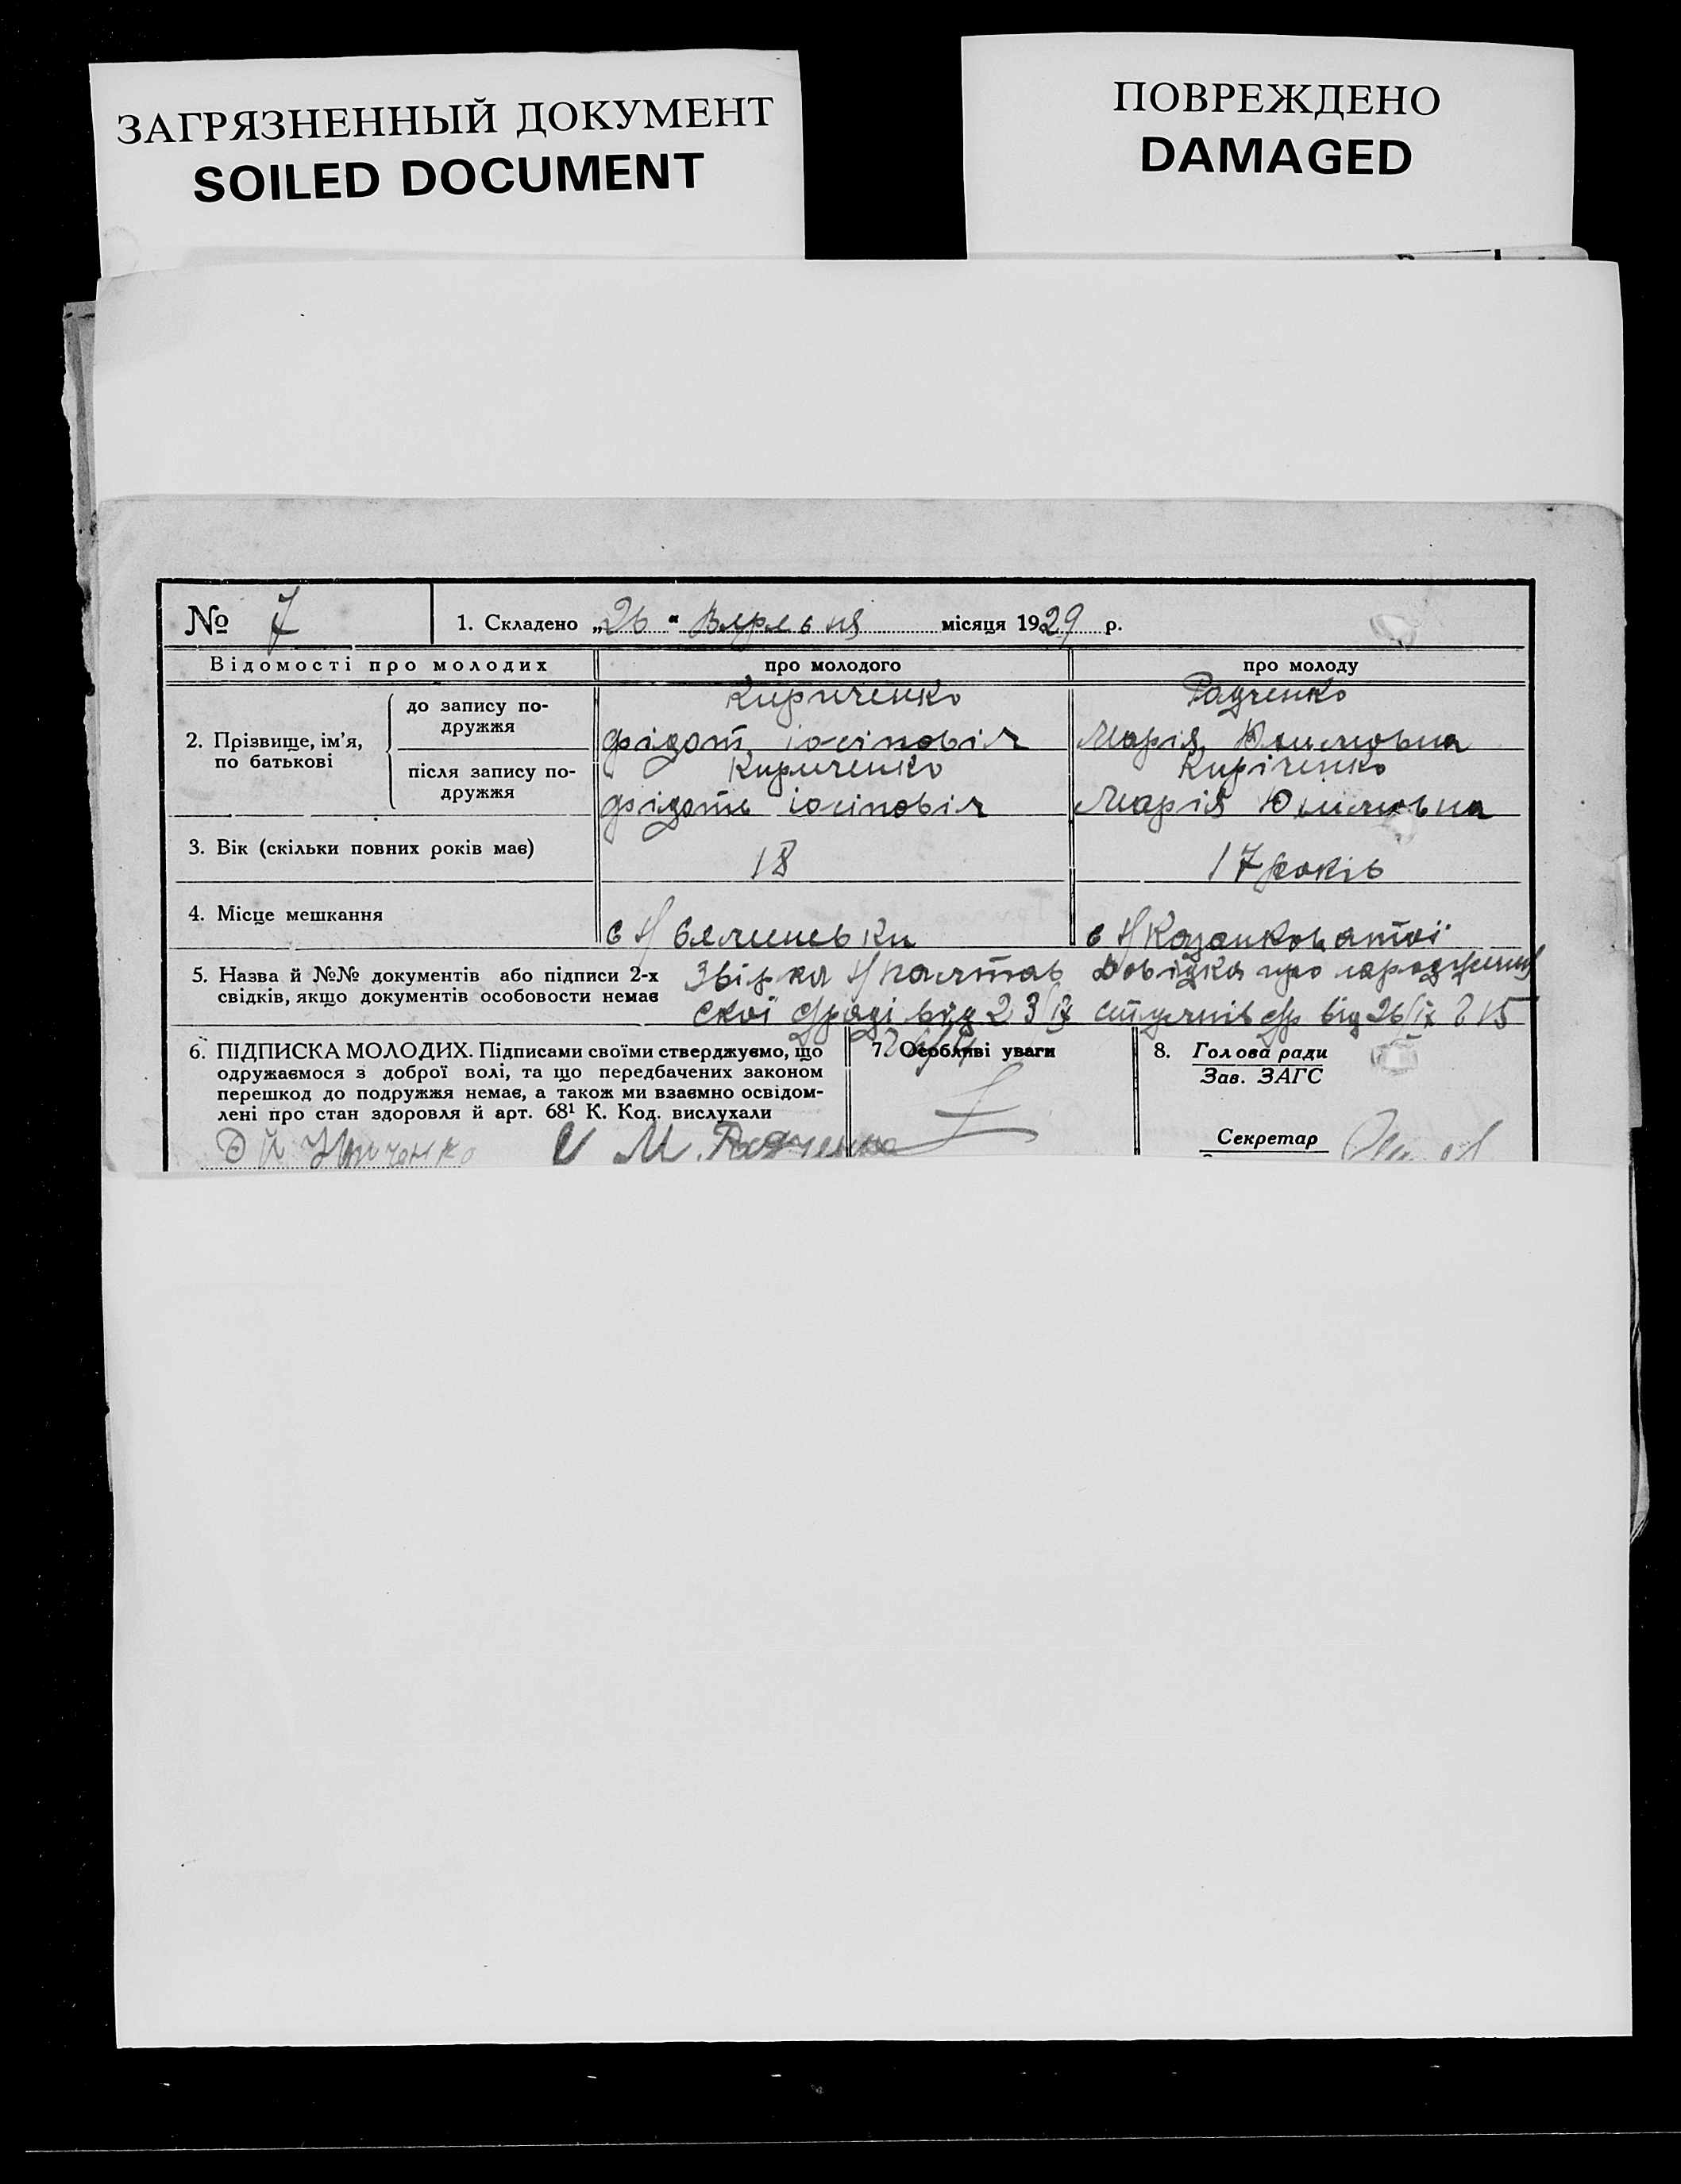 ЗАГРЯЗНЕННЫЙ ДОКУМЕНТ
SOILED DOCUMENT
ПОВРЕЖДЕНО
DAMAGED
№ 7
1. Складено „26“ Вересьня місяця 1929 р.
Відомості про молодих
про молодого
про молоду
2. Прізвище, ім’я, по батькові
до запису по-
дружжя
Кириченко
фідот іосіповіч
Радченко
Марія
після запису по-
дружжя
Кириченко
фідоть іосіповіч
Киріченко
Марія
3. Вік (скільки повних років має)
18
17 років
4. Місце мешкання
с Н
с Н Казанковатої
5. Назва й №№ документів або підписи 2-х
свідків, якщо документів особовости немає
скої с/раді від 23/IX
Довідка про народження
с/р від 26/IX 815
6. ПІДПИСКА МОЛОДИХ. Підписами своїми стверджуємо, що
одружаємося з доброї волі, та що передбачених законом
перешкод до подружжя немає, а також ми взаємно освідом-
лені про стан здоровля й арт. 68¹ К. Код. вислухали
М. Радченко
7. Особливі уваги
8. Голова ради
Зав. ЗАГС
Секретар